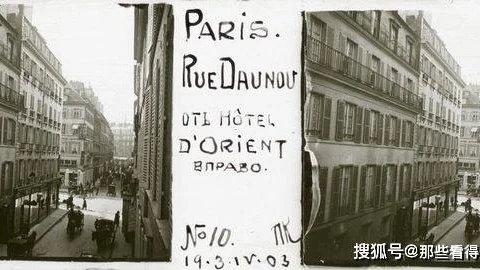 PARIS.
RUE DAUNOU
ОТЪ HÔTEL
D'ORIENT
ВПРАВО.
No 10. ПК
19.3.IV.03
搜狐号@那些看得